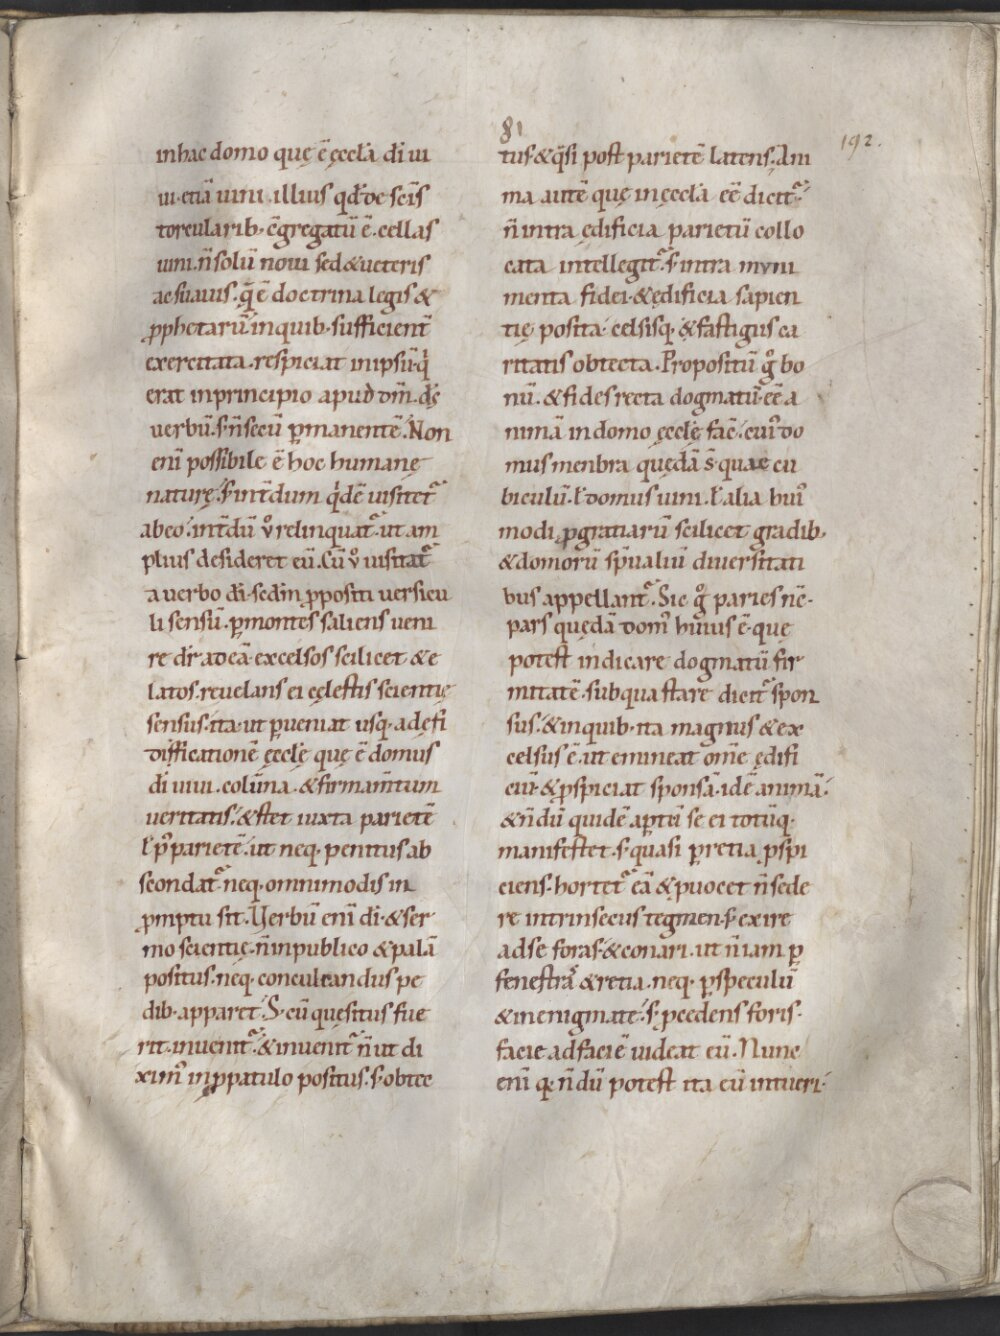 81
192.
in hac domo quę ē ęccl̄a dī ui
ui. etiā uini illius qđ de sc̄is
torcularib; c̄gregatū ē. cellas
uini. n̄ solū noui sed & ueteris
ac suauis. q̄ ē doctrina legis &
ꝓphetarū. in quib; sufficient̄
exercitata. respiciat in ipsū q̇
erat in principio apud dm̄. dš
verbū. s; n̄ secū ꝑmanentē. Non
enī possibile ē hoc humanę
naturę. s; int̄dum q̇dē uisitet᷑
ab eo. int̄dū v̊ relinquat᷑. ut am
plius desideret eū. Cū v̊ uisitat᷑
a verbo dī. sed̄m ꝓpositi versicu
li sensū. ꝑ montes saliens veni
re dr̄ ad eā. excelsos scilicet & e
latos. reuelans ei cęlestis scientię
sensus. ita ut ꝑueniat usq; ad ędi
difficationē ęcclę quę ē domus
dī uiui. colūna. & firmam̄tum
veritatis. & stet iuxta parietē
ł p᷒ parietē. ut neq; penitus ab
scondat᷑. neq; omnimodis in
ꝓmptu sit. Verbū enī dī. & ser
mo scientię. n̄ in publico & palā
positus. neq; conculcandus pe
dib; apparet. S; cū quęsitus fue
rit. inuenit᷑. & inuenit᷑ n̄ ut di
xim᷒ in ꝓpatulo positus. s; obtec
tus. & q̄si post parietē latens. Ani
ma autē quę in ęccl̄a eē dicit᷑.
n̄ intra ędificia parietū collo
cata intellegit᷑. s; intra muni
menta fidei. & ędificia sapien
tię posita. celsisq; & fastigiis ca
ritatis obtecta. Propositū g̊ bo
nū. & fides recta dogmatū. eē a
nimā in domo ęcclę fac̄. cui᷒ do
mus menbra quędā s̄ quae cu
biculū. ł domus uini. ł alia hui᷒
modi ꝓ gratiarū scilicet gradib;
& domorū sp̄ualiū diuersitati
bus appellant᷑. Sic g̊ paries nē.
pars quędā dom᷒ huius ē. quę
potest indicare dogmatū fir
mitatē. sub qua stare dicit᷑ spon
sus. & in quib; ita magnus & ex
celsus ē. ut emineat om̄e ędifi
ciū. & ꝓspiciat sponsā. idē animā.
& n̄dū quidē aꝑtū se ei totūq;
manifestet. s; quasi ꝑ retia ꝓspi
ciens. hortet᷑ eā & ꝓuocet n̄ sede
re intrinsecus tegmen. s; exire
ad se foras. & conari. ut n̄ iam ꝑ
fenestrā & retia. neq; ꝑ speculū
& in enigmate. s; ꝓcedens foris.
facie ad faciē uideat eū. Nunc
enī q; n̄dū potest ita eū intueri.